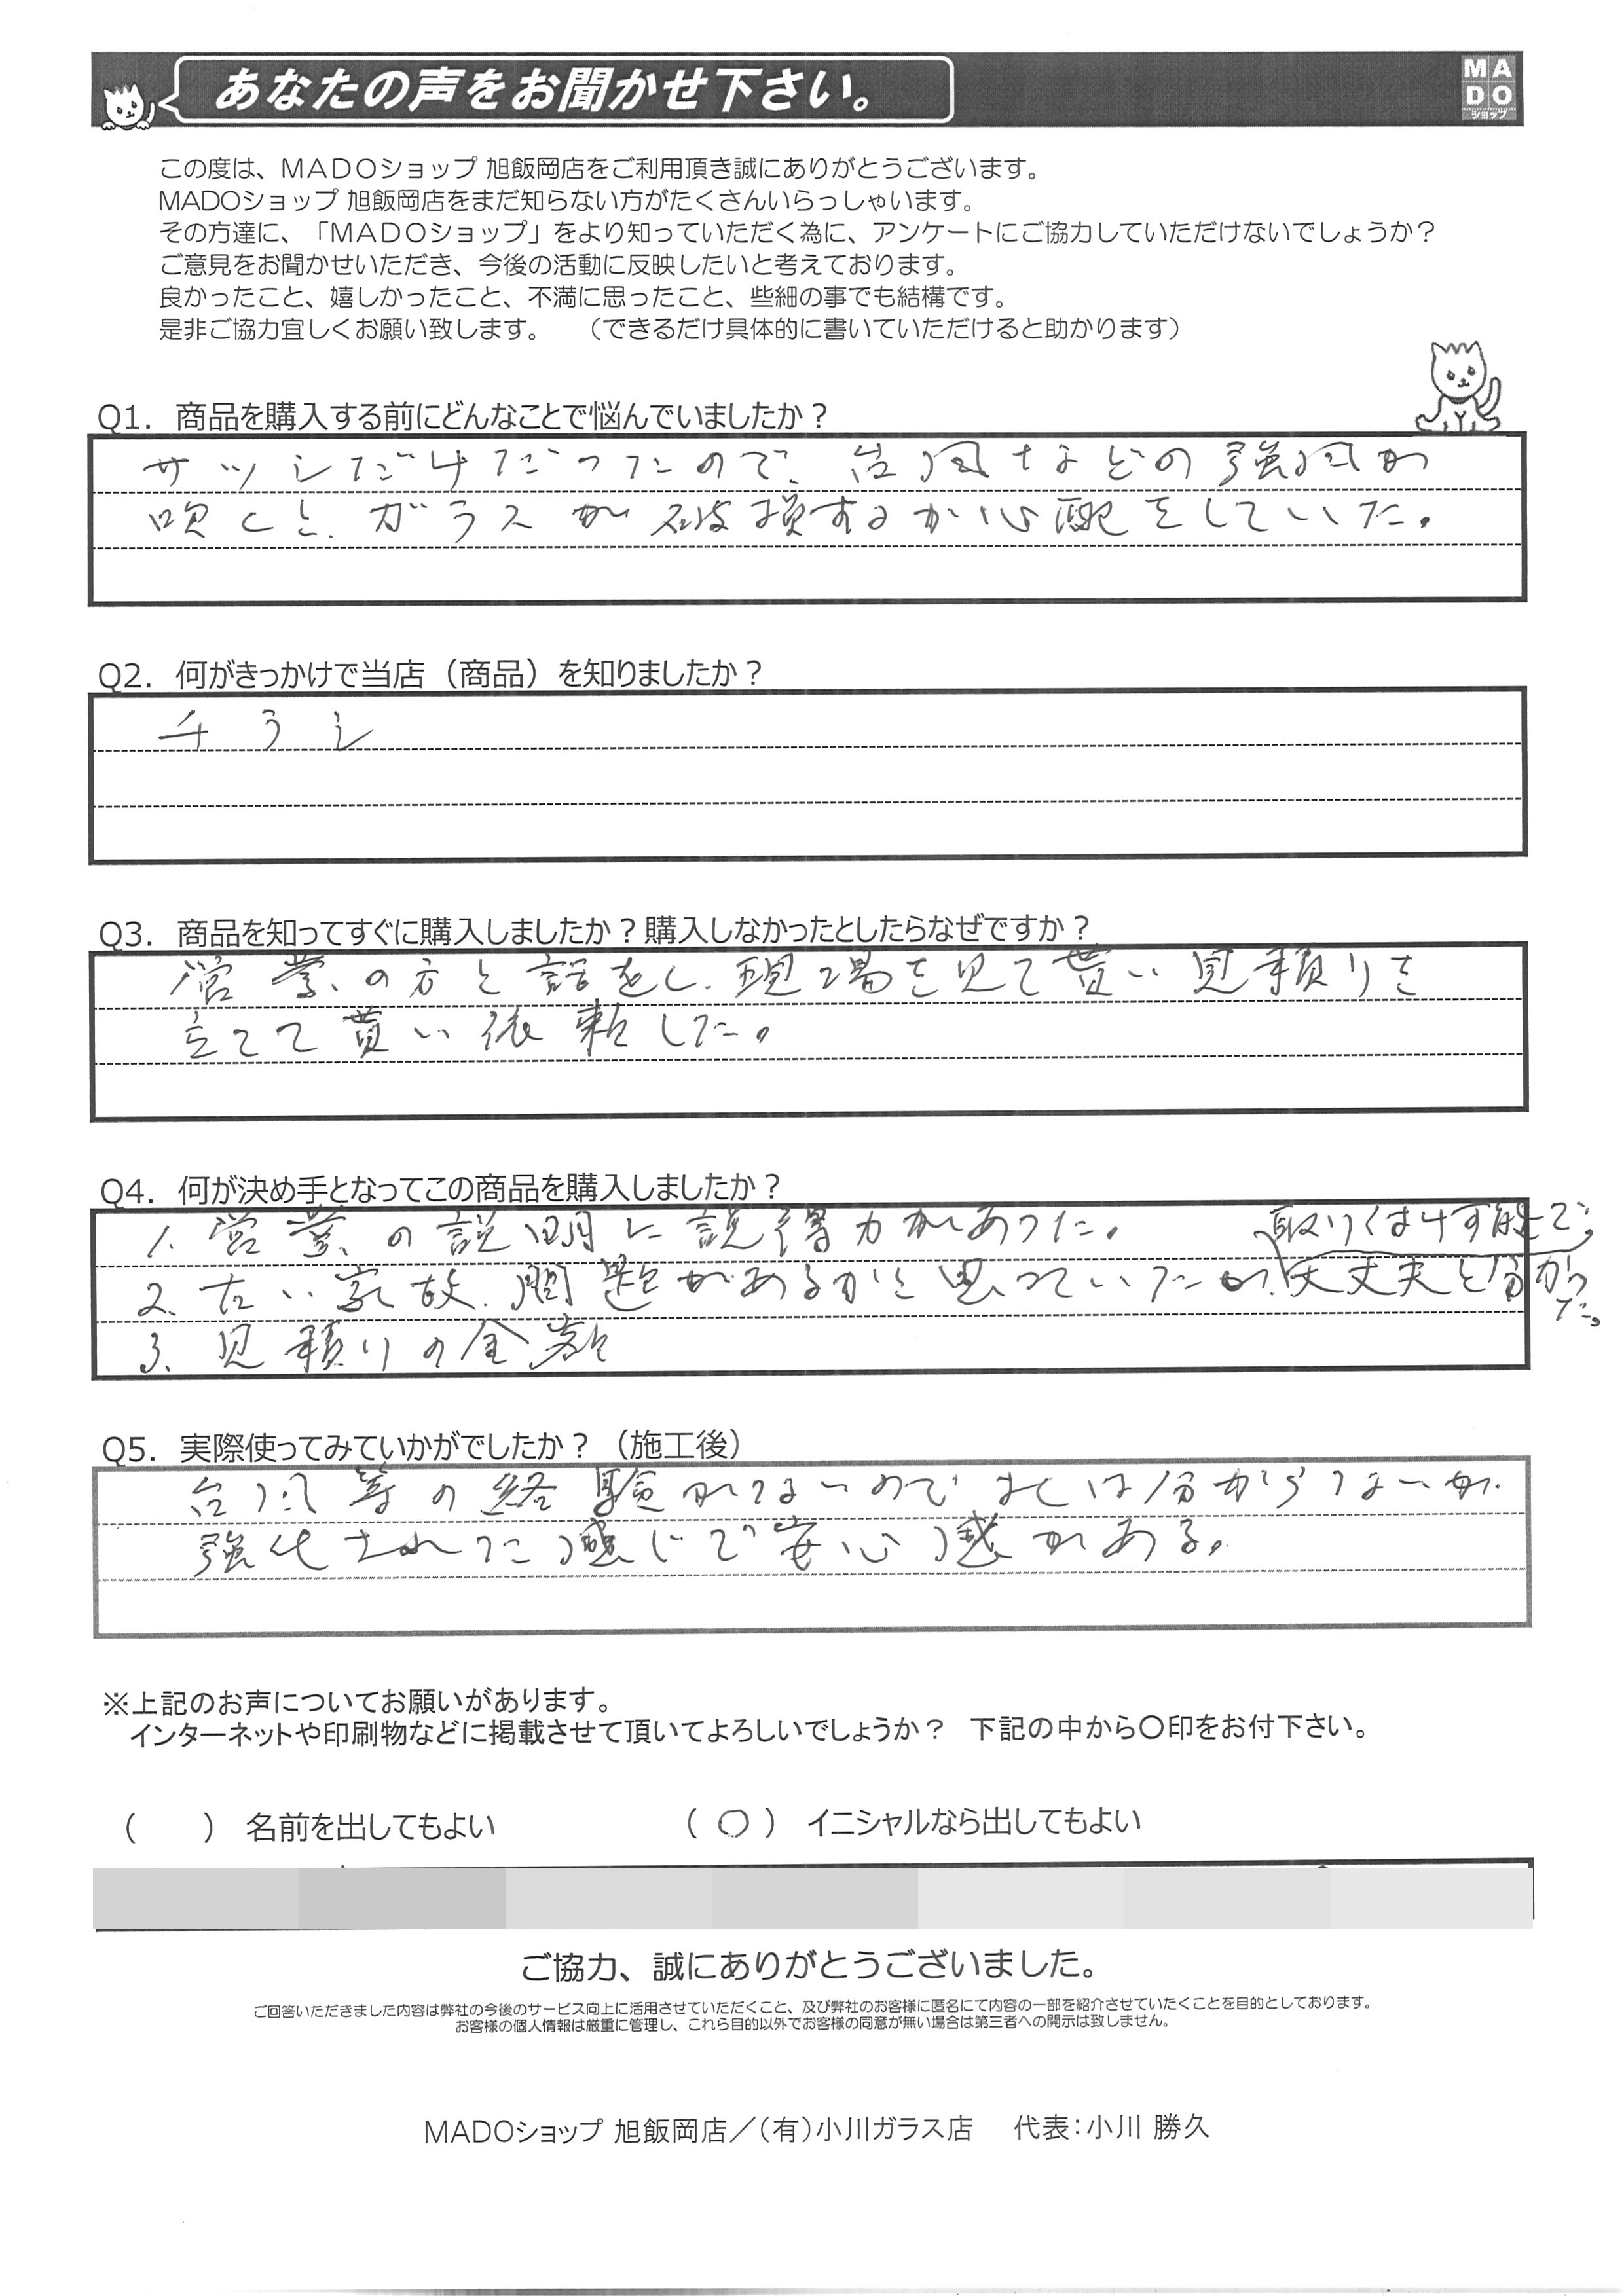 あなたの声をお聞かせ下さい。
MA
DO
ショップ
この度は、MADOショップ 旭飯岡店をご利用頂き誠にありがとうございます。
MADOショップ 旭飯岡店をまだ知らない方がたくさんいらっしゃいます。
その方達に、「MADOショップ」をより知っていただく為に、アンケートにご協力していただけないでしょうか？
ご意見をお聞かせいただき、今後の活動に反映したいと考えております。
良かったこと、嬉しかったこと、不満に思ったこと、些細の事でも結構です。
是非ご協力宜しくお願い致します。　（できるだけ具体的に書いていただけると助かります）
Q1. 商品を購入する前にどんなことで悩んでいましたか？
サッシだけだったので、台風などの強風が
吹くと、ガラスが破損するか心配をしていた。
Q2. 何がきっかけで当店（商品）を知りましたか？
チラシ
Q3. 商品を知ってすぐに購入しましたか？購入しなかったとしたらなぜですか？
営業の方と話をし、現場を見て貰い見積りを
立てて貰い依頼した。
Q4. 何が決め手となってこの商品を購入しましたか？
1. 営業の説明に説得力があった。
2. 古い家故、問題があるかと思っていたが、大丈夫と分かった。
3. 見積りの金額
Q5. 実際使ってみていかがでしたか？（施工後）
台風等の経験がないのでまだ分からないが、
強化された感じで安心感がある。
※上記のお声についてお願いがあります。
インターネットや印刷物などに掲載させて頂いてよろしいでしょうか？　下記の中から〇印をお付下さい。
（　　）名前を出してもよい　（〇）イニシャルなら出してもよい
ご協力、誠にありがとうございました。
ご回答いただきました内容は弊社の今後のサービス向上に活用させていただくこと、及び弊社のお客様に匿名にて内容の一部を紹介させていたくことを目的としております。
お客様の個人情報は厳重に管理し、これら目的以外でお客様の同意が無い場合は第三者への開示は致しません。
MADOショップ 旭飯岡店／（有）小川ガラス店　代表：小川 勝久